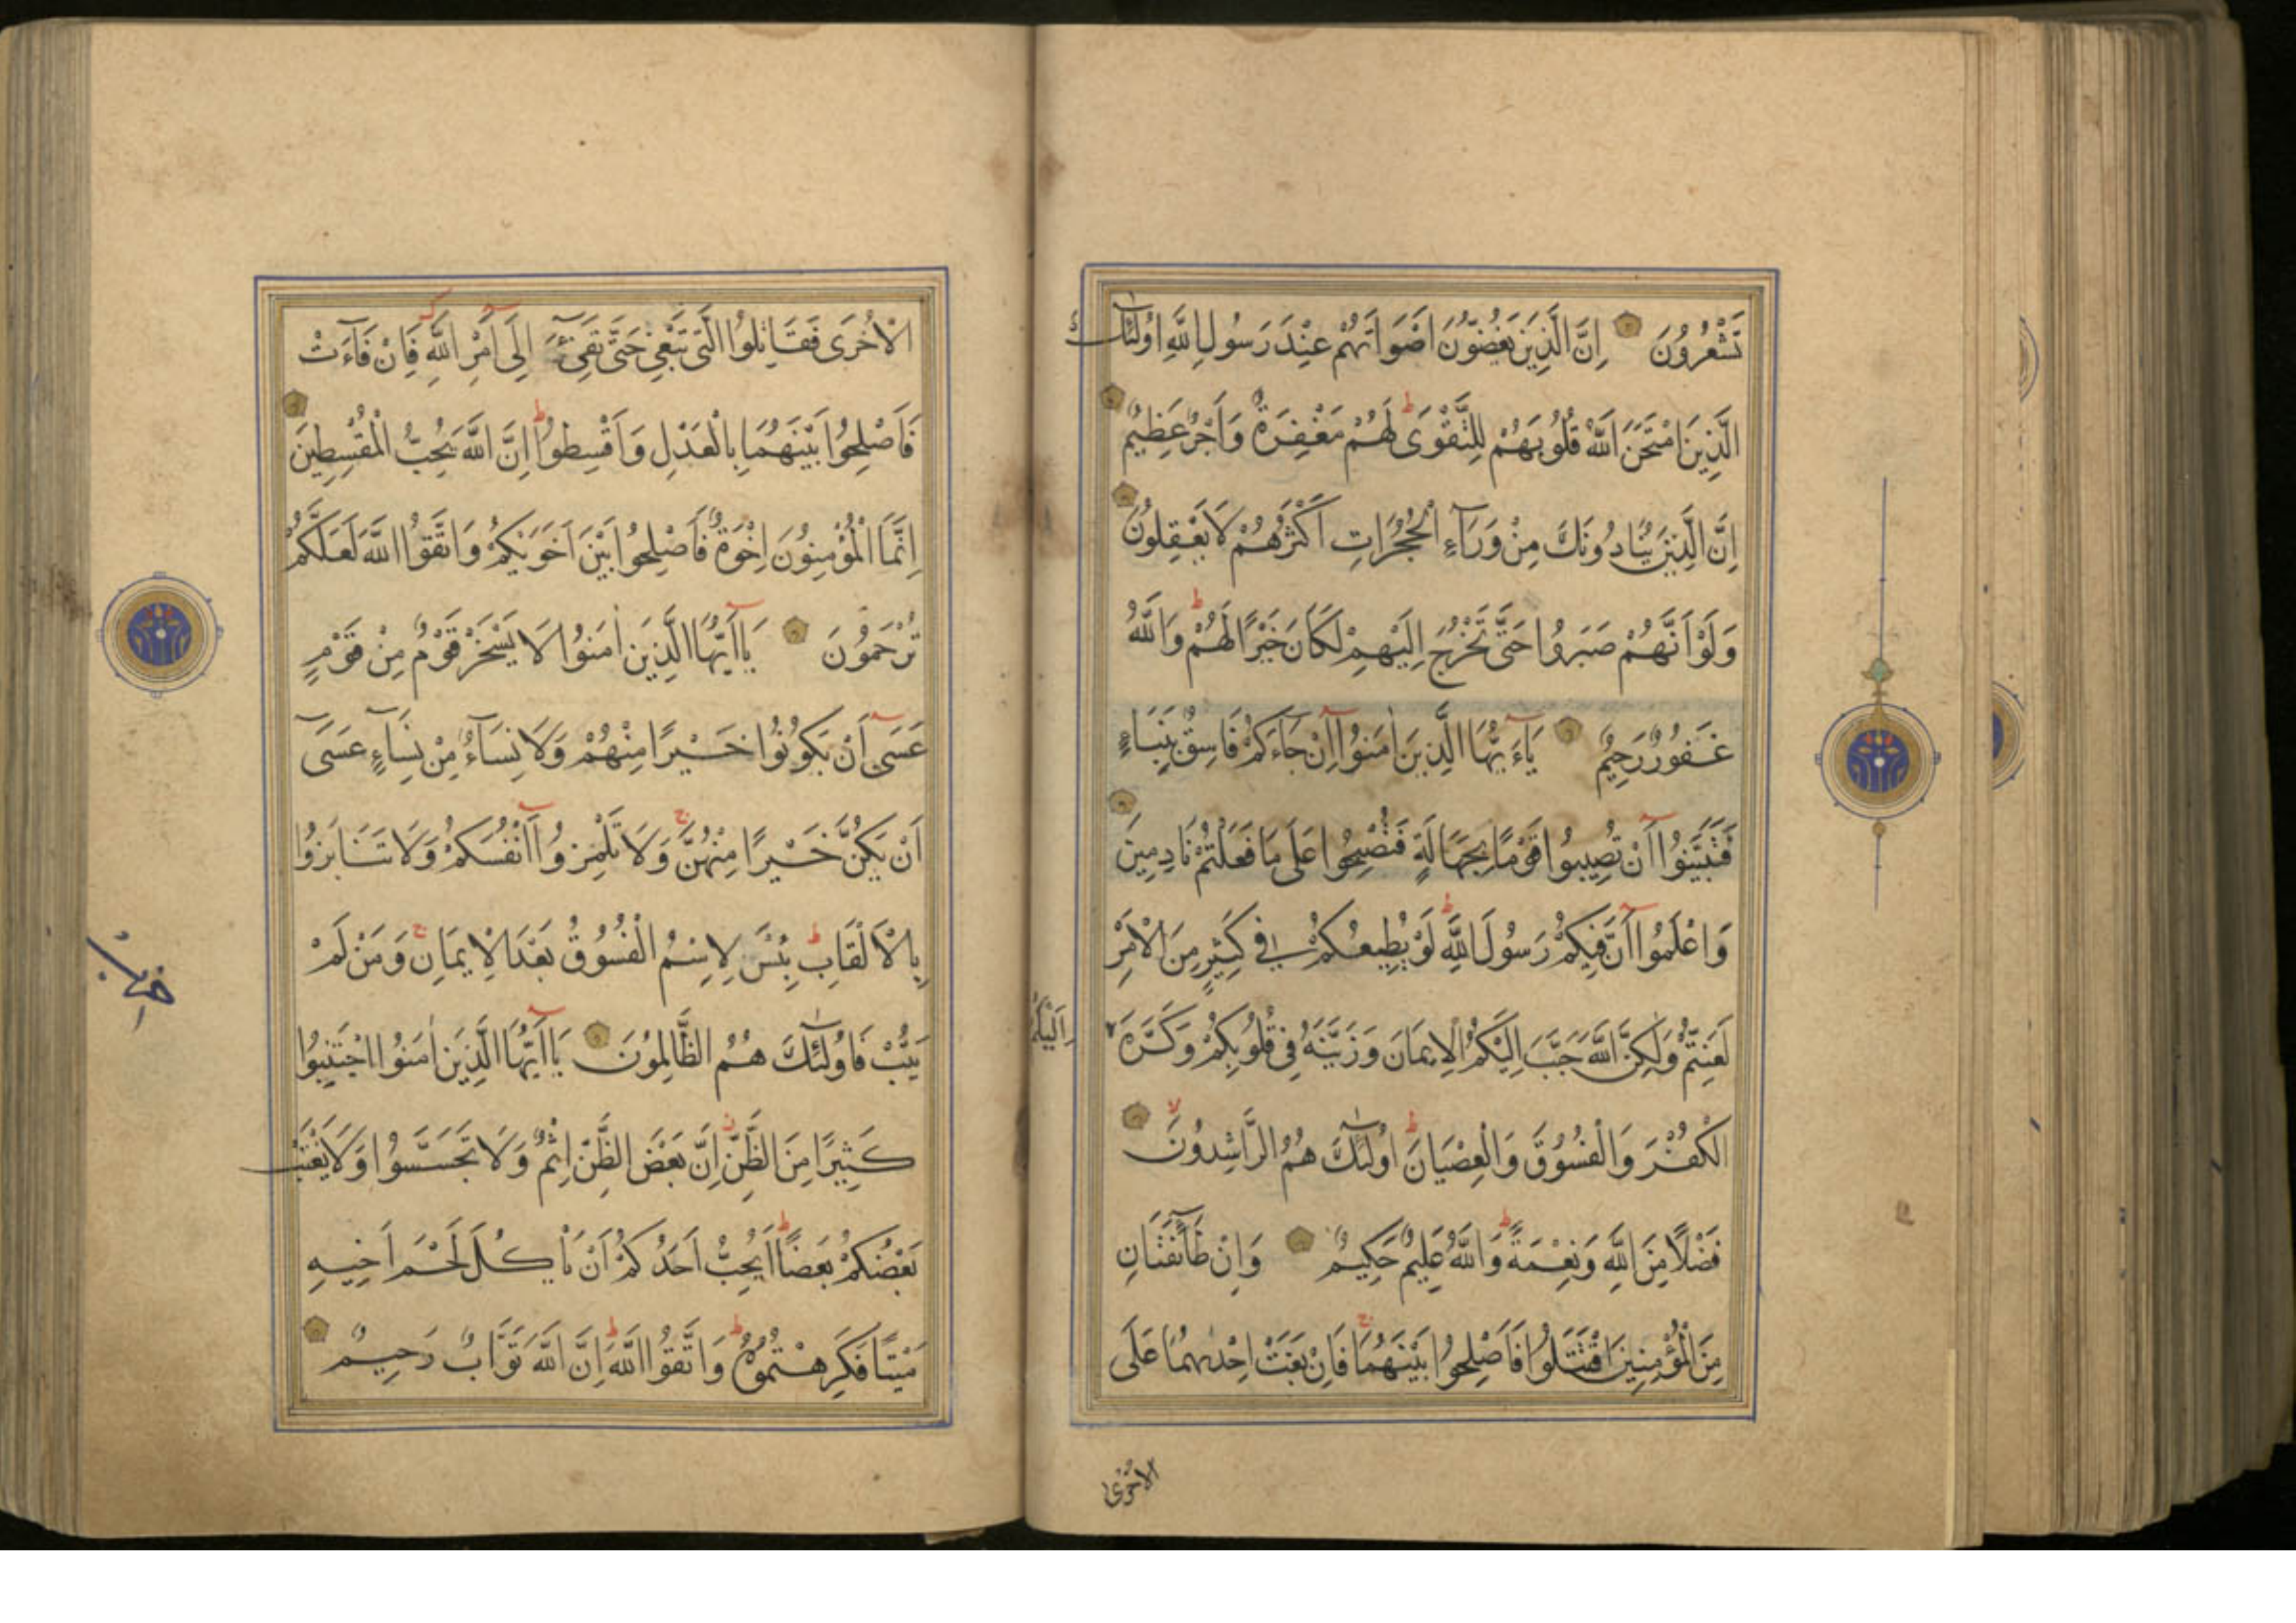 تَشْعُرُونَ اِنَّ الَّذِينَ يَغُضُّونَ اَصْوَاتَهُمْ عِنْدَ رَسُولِ اللّٰهِ اُولٰئِكَ
الَّذِينَ امْتَحَنَ اللّٰهُ قُلُوبَهُمْ لِلتَّقْوَى لَهُمْ مَغْفِرَةٌ وَاَجْرٌ عَظِيمٌ
اِنَّ الَّذِينَ يُنَادُونَكَ مِنْ وَرَآءِ الْحُجُرَاتِ اَكْثَرُهُمْ لَا يَعْقِلُونَ
وَلَوْ اَنَّهُمْ صَبَرُوا حَتَّى تَخْرُجَ اِلَيْهِمْ لَكَانَ خَيْرًا لَهُمْ وَاللّٰهُ
غَفُورٌ رَحِيمٌ يَآءَيُّهَا الَّذِينَ اٰمَنُوا اِنْ جَاءَكُمْ فَاسِقٌ بِنَبَاءٍ
فَتَبَيَّنُوا اَنْ تُصِيبُوا قَوْمًا بِجَهَالَةٍ فَتُصْبِحُوا عَلَى مَا فَعَلْتُمْ نَادِمِينَ
وَاعْلَمُوا اَنَّ فِيكُمْ رَسُولَ اللّٰهِ لَوْ يُطِيعُكُمْ فِي كَثِيرٍ مِنَ الْاَمْرِ
لَعَنِتُّمْ وَلٰكِنَّ اللّٰهَ حَبَّبَ اِلَيْكُمُ الْاِيمَانَ وَزَيَّنَهُ فِي قُلُوبِكُمْ وَكَرَّهَ
اِلَيْكُمُ
الْكُفْرَ وَالْفُسُوقَ وَالْعِصْيَانَ اُولٰئِكَ هُمُ الرَّاشِدُونَ
فَضْلًا مِنَ اللّٰهِ وَنِعْمَةً وَاللّٰهُ عَلِيمٌ حَكِيمٌ وَاِنْ طَآئِفَتَانِ
مِنَ الْمُؤْمِنِينَ اقْتَتَلُوا فَاَصْلِحُوا بَيْنَهُمَا فَاِنْ بَغَتْ اِحْدٰىهُمَا عَلَى
الْاُخْرَى
الْاُخْرَى فَقَاتِلُوا الَّتِي تَبْغِي حَتَّى تَفِيٓءَ اِلَى اَمْرِ اللّٰهِ فَاِنْ فَآءَتْ
فَاَصْلِحُوا بَيْنَهُمَا بِالْعَدْلِ وَاَقْسِطُوا اِنَّ اللّٰهَ يُحِبُّ الْمُقْسِطِينَ
اِنَّمَا الْمُؤْمِنُونَ اِخْوَةٌ فَاَصْلِحُوا بَيْنَ اَخَوَيْكُمْ وَاتَّقُوا اللّٰهَ لَعَلَّكُمْ
تُرْحَمُونَ يَآاَيُّهَا الَّذِينَ اٰمَنُوا لَا يَسْخَرْ قَوْمٌ مِنْ قَوْمٍ
عَسَى اَنْ يَكُونُوا خَيْرًا مِنْهُمْ وَلَا نِسَآءٌ مِنْ نِسَآءٍ عَسَى
اَنْ يَكُنَّ خَيْرًا مِنْهُنَّ وَلَا تَلْمِزُوا اَنْفُسَكُمْ وَلَا تَنَابَزُوا
بِالْاَلْقَابِ بِئْسَ لِاِسْمُ الْفُسُوقُ بَعْدَ الْاِيمَانِ وَمَنْ لَمْ
يَتُبْ فَاُولٰئِكَ هُمُ الظَّالِمُونَ يَآاَيُّهَا الَّذِينَ اٰمَنُوا اجْتَنِبُوا
كَثِيرًا مِنَ الظَّنِّ اِنَّ بَعْضَ الظَّنِّ اِثْمٌ وَلَا تَجَسَّسُوا وَلَا يَغْتَبْ
بَعْضُكُمْ بَعْضًا اَيُحِبُّ اَحَدُكُمْ اَنْ يَاْكُلَ لَحْمَ اَخِيهِ
مَيْتًا فَكَرِهْتُمُوهُ وَاتَّقُوا اللّٰهَ اِنَّ اللّٰهَ تَوَّابٌ رَحِيمٌ